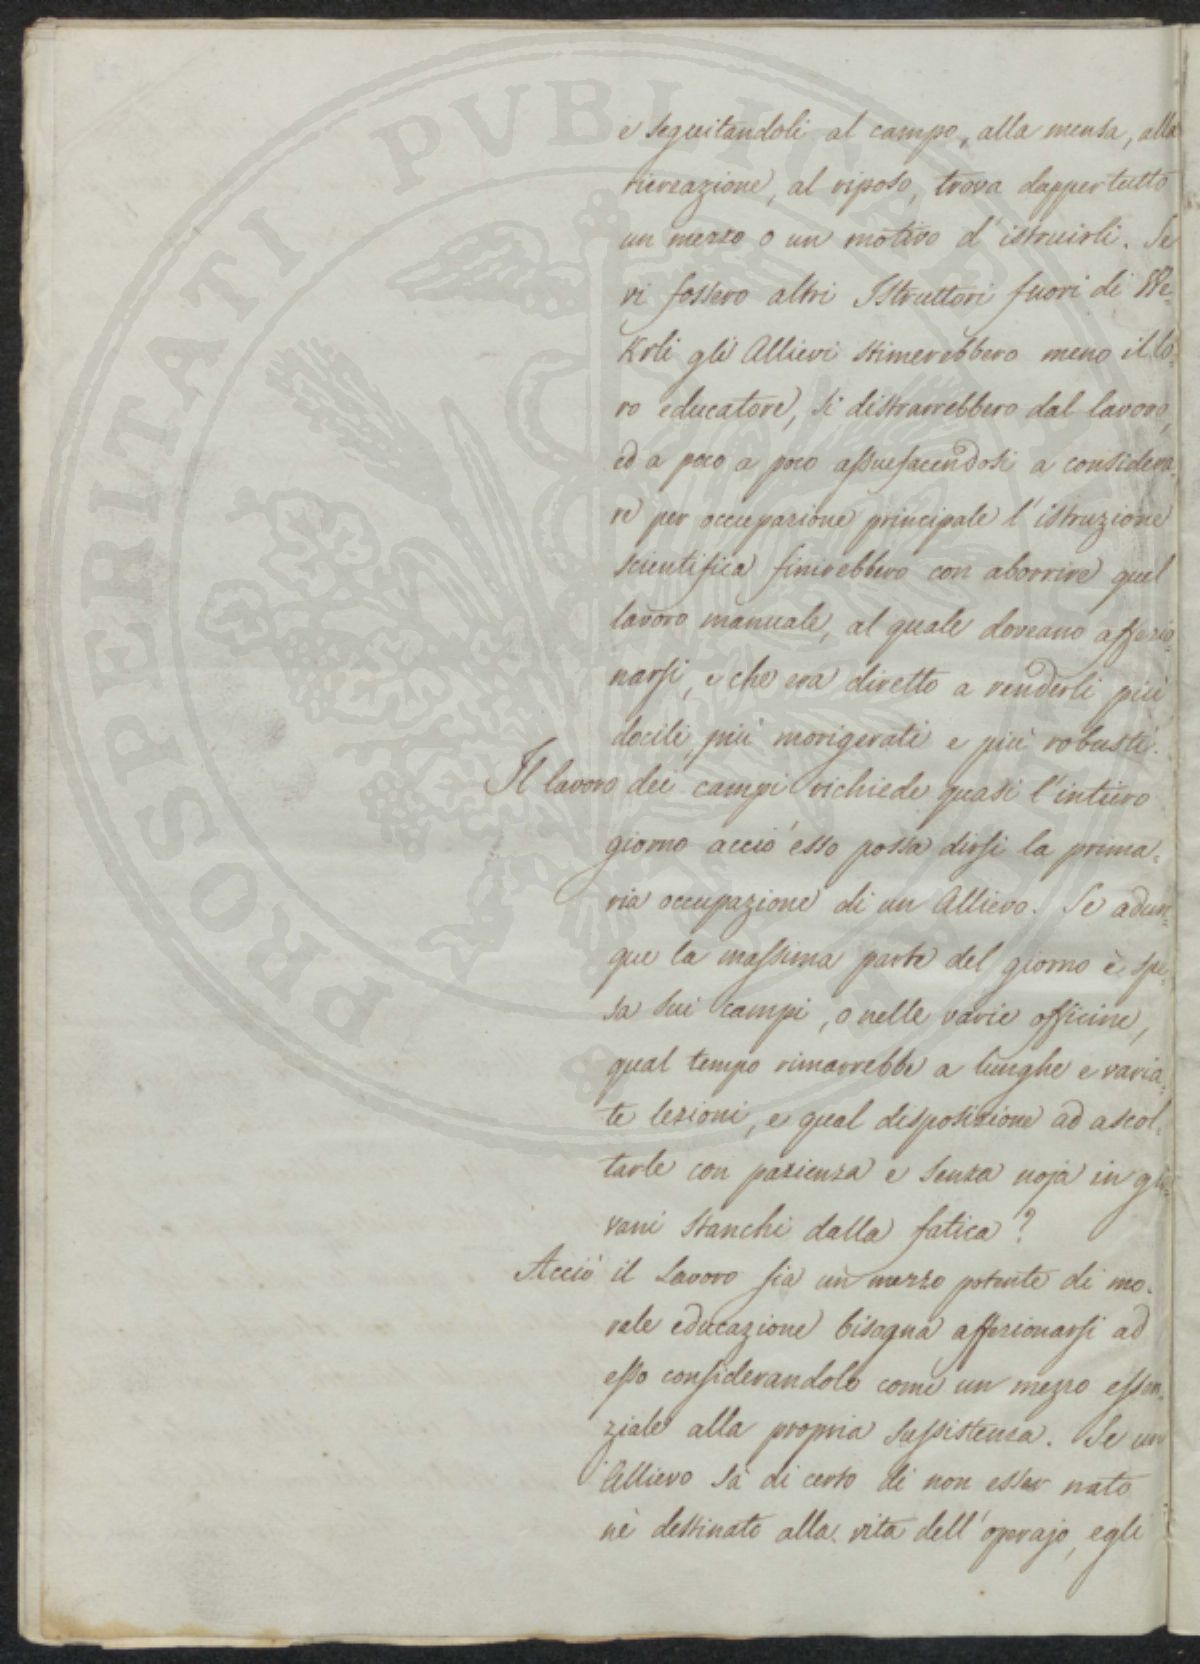 e seguitandoli al campo, alla mensa, alla
ricreazione, al riposo, trova dappertutto
un mezzo o un motivo d'istruirli. Se
vi fossero altri Istruttori fuori di We-
Krli gli Allievi stimerebbero meno il lo-
ro educatore, si distrarrebbero dal lavoro,
ed a poco a poco assuefacendosi a considera-
re per occupazione principale l'istruzione
scientifica finirebbero con aborrire quel
lavoro manuale, al quale doveano affezio-
narsi, e che era diretto a renderli più
docili più morigerati e più robusti.
Il lavoro dei campi richiede quasi l'intiero
giorno acciò esso possa dirsi la prima-
ria occupazione di un Allievo. Se adun-
que la massima parte del giorno è spe-
sa sui campi, o nelle varie officine,
qual tempo rimarrebbe a lunghe e varia-
te lezioni, e qual disposizione ad ascol-
tarle con pazienza e senza noja in gio-
vani stanchi dalla fatica?
Acciò il Lavoro sia un mezzo potente di mo-
rale educazione bisogna affezionarsi ad
esso considerandolo come un mezzo essen-
ziale alla propria sussistenza. Se un
Allievo sà di certo di non esser nato
nè destinato alla vita dell'operajo, egli
PROSPERITATI PVBLICAE